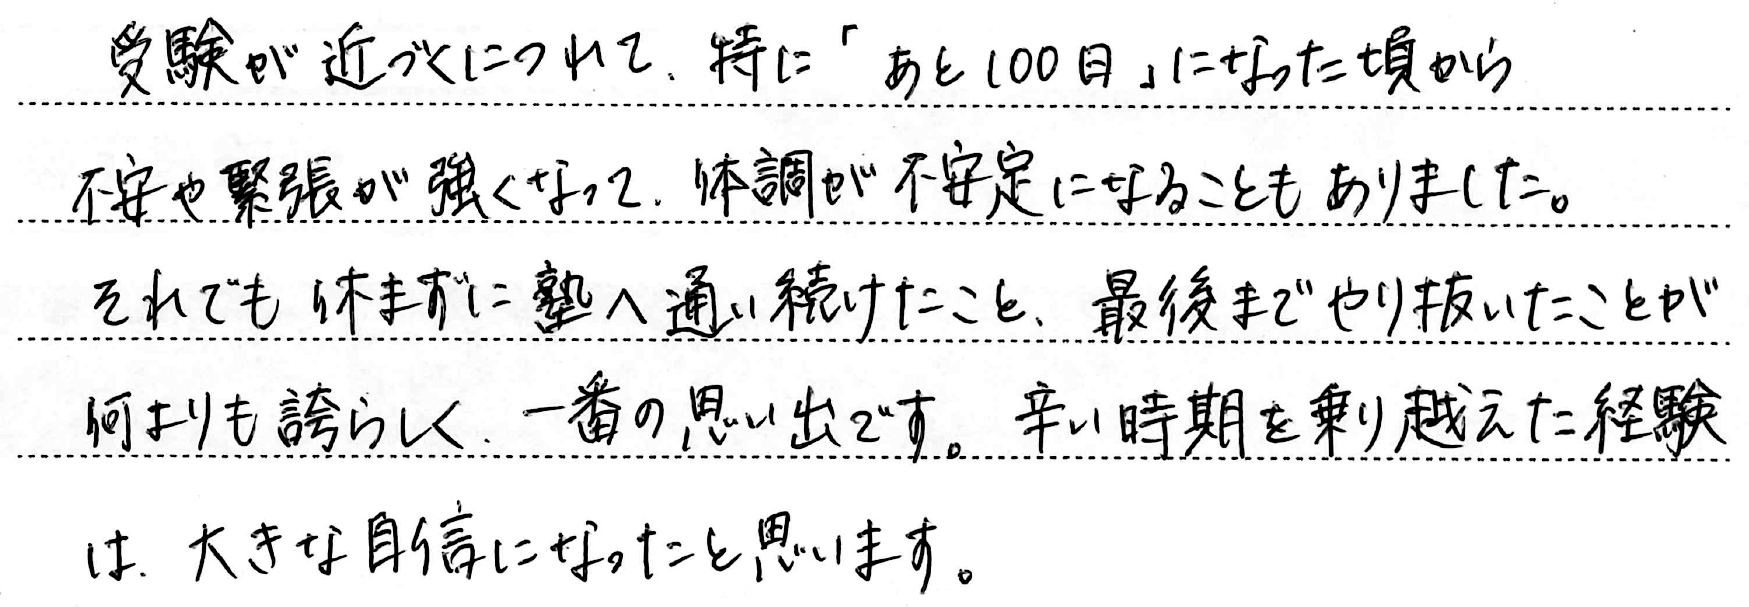 受験が近づくにつれて、特に「あと100日」になった頃から
不安や緊張が強くなって、体調が不安定になることもありました。
それでも休まずに塾へ通い続けたこと、最後までやり抜いたことが
何よりも誇らしく、一番の思い出です。辛い時期を乗り越えた経験
は、大きな自信になったと思います。